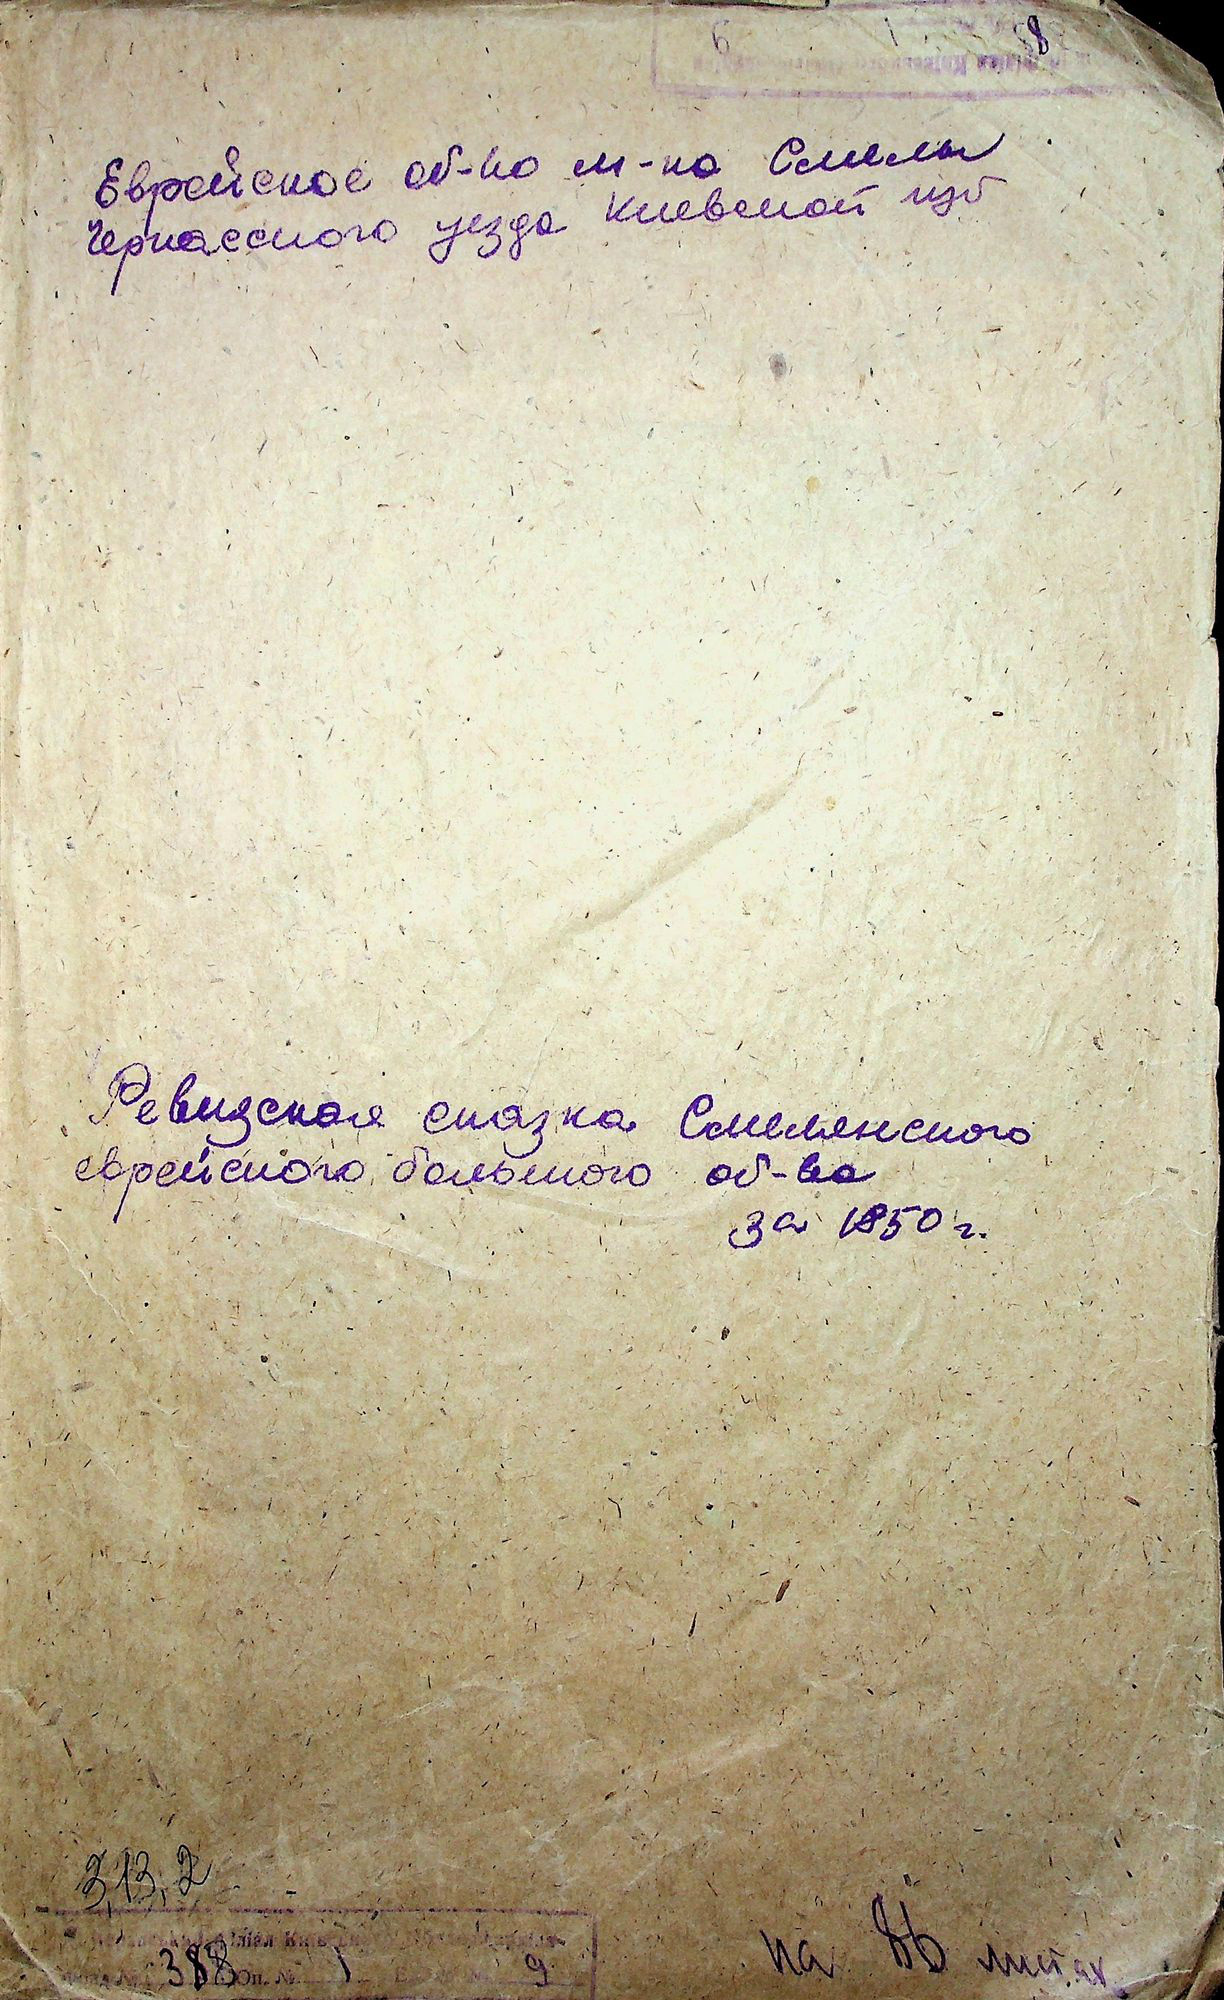 Еврейское об-во м-ка Смелы
Черкасского уезда Киевской губ
Ревизская сказка Смелянского
еврейского большого об-ва
за 1850 г.
3,13,2
388 Оп. № 1 9
на 86 листах